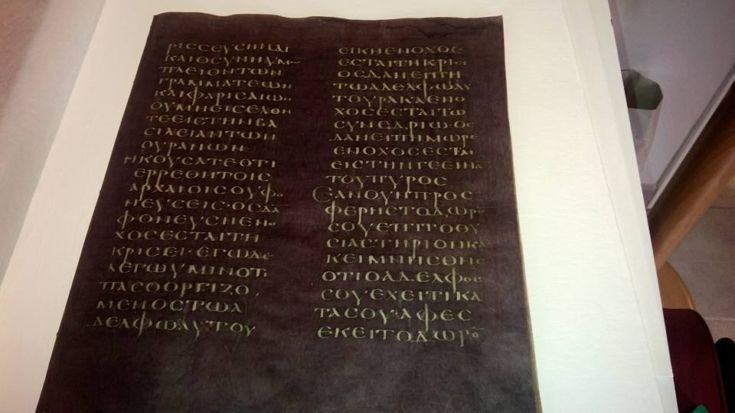 ΡΙϹϹΕΥϹΗΗΔΙ
ΚΑΙΟϹΥΝΗΥΜΩ
ΠΛΕΙΟΝΤΩΝ
ΓΡΑΜΜΑΤΕΩΝ
ΚΑΙΦΑΡΙϹΑΙΩ
ΟΥΜΗΕΙϹΕΛΘΗ
ΤΕΕΙϹΤΗΝΒΑ
ϹΙΛΕΙΑΝΤΩΝ
ΟΥΡΑΝΩΝ
ΗΚΟΥϹΑΤΕΟΤΙ
ΕΡΡΕΘΗΤΟΙϹ
ΑΡΧΑΙΟΙϹΟΥΦΟ
ΝΕΥϹΕΙϹΟϹΔΑ
ΦΟΝΕΥϹΗΕΝΟ
ΧΟϹΕϹΤΑΙΤΗ
ΚΡΙϹΕΙ·ΕΓΩΔΕ
ΛΕΓΩΥΜΙΝΟΤΙ
ΠΑϹΟΟΡΓΙΖΟ
ΜΕΝΟϹΤΩΑ
ΔΕΛΦΩΑΥΤΟΥ
ΕΙΚΗΕΝΟΧΟϹ
ΕϹΤΑΙΤΗΚΡΙϹΙ
ΟϹΔΑΝΕΙΠΗ
ΤΩΑΔΕΛΦΩΑΥ
ΤΟΥΡΑΚΑΕΝΟ
ΧΟϹΕϹΤΑΙΤΩ
ϹΥΝΕΔΡΙΩ·ΟϹ
ΔΑΝΕΙΠΗΜΩΡΕ
ΕΝΟΧΟϹΕϹΤΑΙ
ΕΙϹΤΗΝΓΕΕΝΝΑ
ΤΟΥΠΥΡΟϹ
ΕΑΝΟΥΝΠΡΟϹ
ΦΕΡΗϹΤΟΔΩΡΟ
ϹΟΥΕΠΙΤΟΘΥ
ϹΙΑϹΤΗΡΙΟΝΚΑ
ΚΕΙΜΝΗϹΘΗϹ
ΟΤΙΟΑΔΕΛΦΟϹ
ϹΟΥΕΧΕΙΤΙΚΑ
ΤΑϹΟΥ·ΑΦΕϹ
ΕΚΕΙΤΟΔΩΡΟ